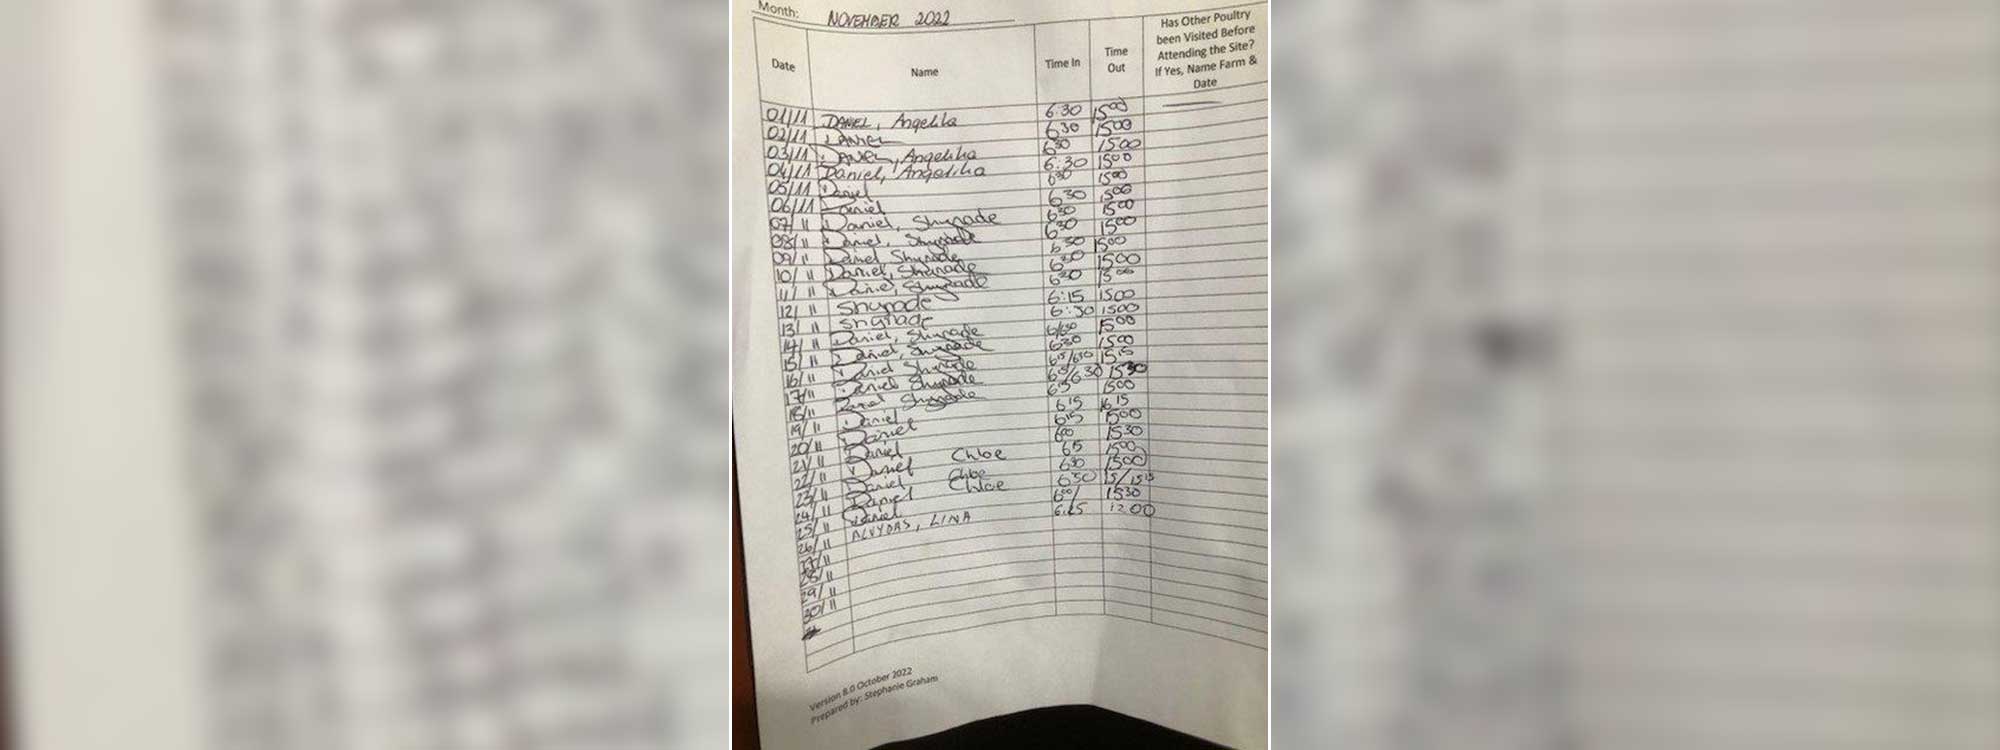 Month: NOVEMBER 2022
Date Name Time In Time Out Has Other Poultry been Visited Before Attending the Site? If Yes, Name Farm & Date
01/11 DANIEL, Angelika 6:30 1500
02/11 DANIEL 630 1500
03/11 DANIEL, Angelika 630 1500
04/11 Daniel, Angelika 6:30 1500
05/11 Daniel 630 1500
06/11 Daniel 630 1500
07/11 Daniel, Shynade 630 1500
08/11 Daniel, Shynade 630 1500
09/11 Daniel Shynade 630 1500
10/11 Daniel, Shynade 630 1500
11/11 Daniel, Shynade 630 1500
12/11 Shynade 6:15 1500
13/11 Shynade 6:30 1500
14/11 Daniel, Shynade 1500
15/11 Daniel, Shynade 630 1500
16/11 Daniel Shynade 615/630 1515
17/11 Daniel Shynade 615/630 1530
18/11 Daniel Shynade 615 1500
19/11 Daniel 615 1615
20/11 Daniel 615 1500
21/11 Daniel 600 1530
22/11 Daniel Chloe 615 1500
23/11 Daniel Chloe 630 1500
24/11 Daniel Chloe 630 15/1515
25/11 Daniel 600/ 1530
26/11 ALVYDAS, LINA 6:15 1200
27/11
28/11
29/11
30/11
Version 8.0 October 2022
Prepared by: Stephanie Graham